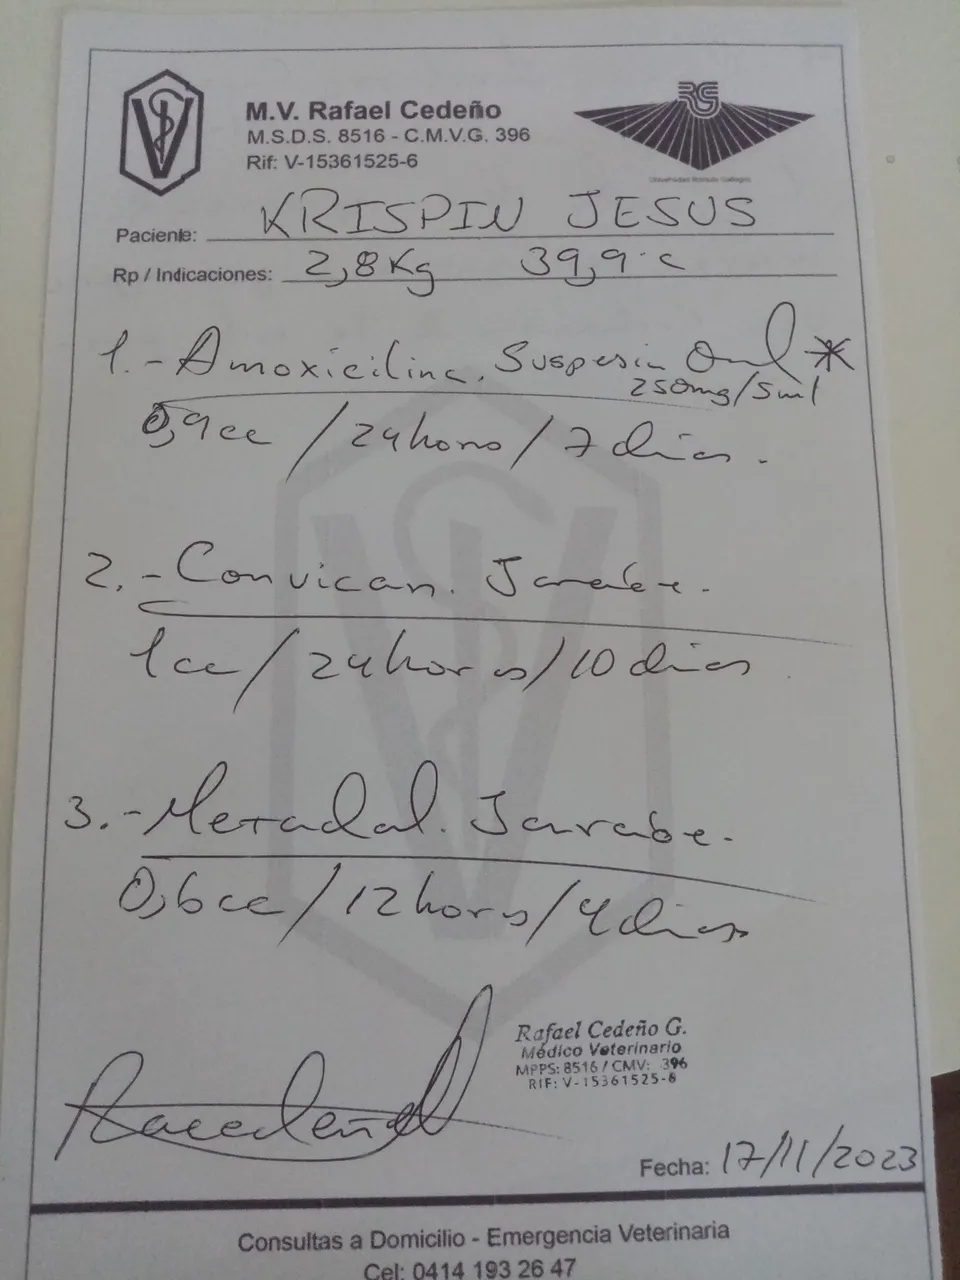 M.V. Rafael Cedeño
M.S.D.S. 8516 - C.M.V.G. 396
Rif: V-15361525-6
RG
Universidad Rómulo Gallegos
Paciente: KRISPIN JESUS
Rp / Indicaciones: 2,8Kg 39,9°c
1.- Amoxicilina. Suspesin Oral *
250mg/5ml
0,9cc / 24horas / 7 dias.
2.- Convican. Jarabe.
1cc / 24horas / 10 dias
3.- Metadol. Jarabe.
0,6cc / 12horas / 4 dias
Rafael Cedeño G.
Médico Veterinario
MPPS: 8516 / CMV: 396
RIF: V-15361525-6
Racedeño
Fecha: 17/11/2023
Consultas a Domicilio - Emergencia Veterinaria
Cel: 0414 193 26 47